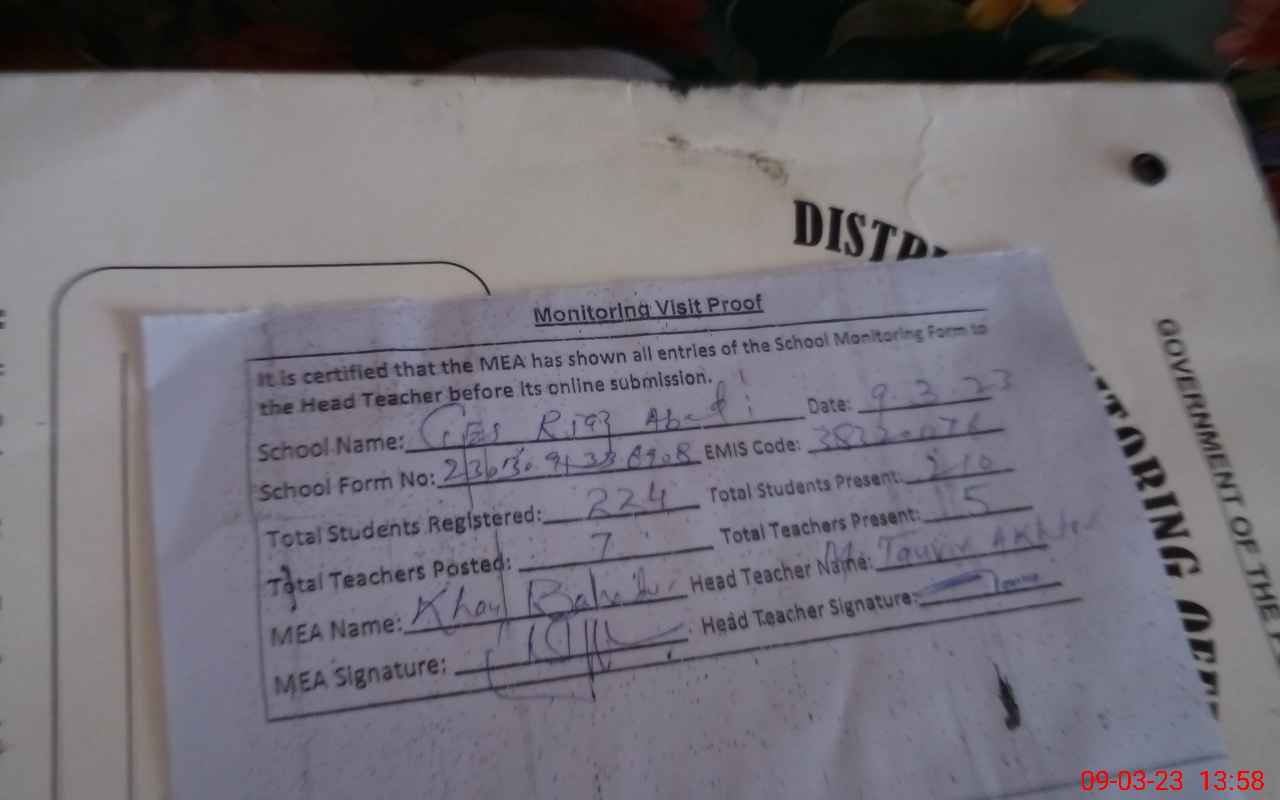 DISTR
GOVERNMENT OF THE P
TORING OFF
Monitoring Visit Proof
It is certified that the MEA has shown all entries of the School Monitoring Form to
the Head Teacher before its online submission.
School Name: GES Riaz Abad Date: 9.3.23
School Form No: EMIS Code:
Total Students Registered: 224 Total Students Present: 210
Total Teachers Posted: 7 Total Teachers Present: 5
MEA Name: Khan Head Teacher Name: M. Akhtar
MEA Signature: Head Teacher Signature:
09-03-23 13:58